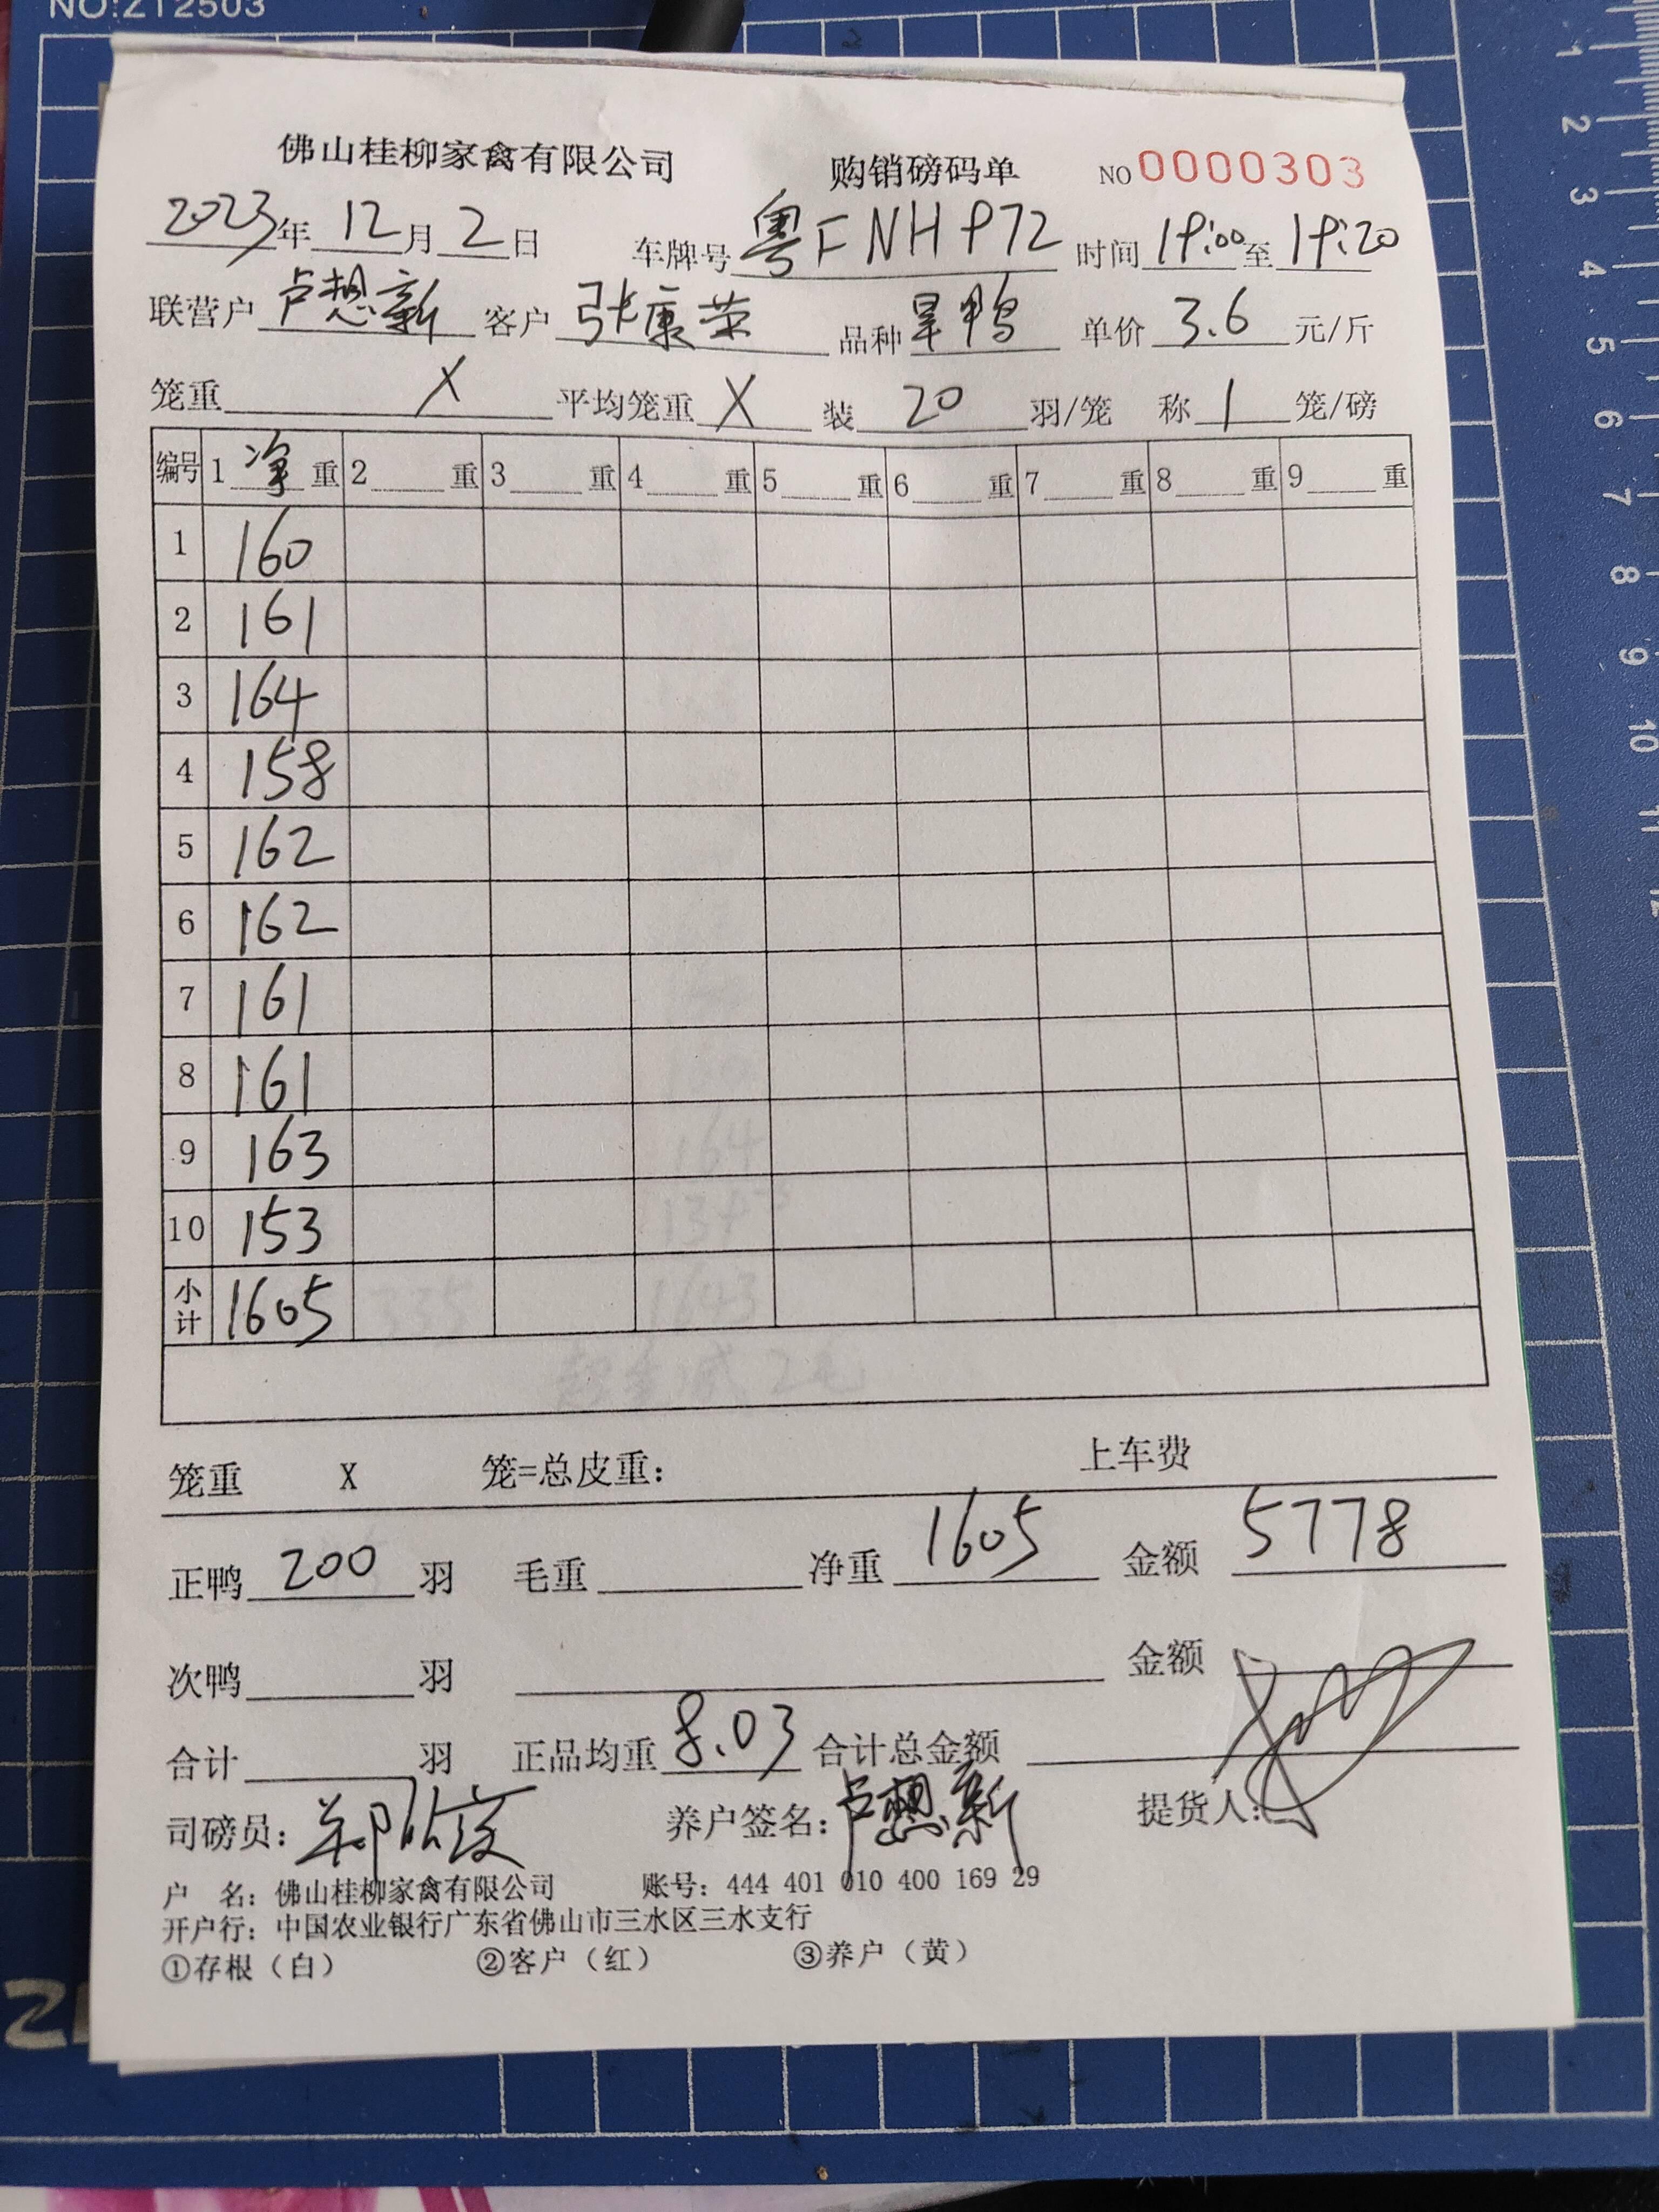 NO:ZT2503
佛山桂柳家禽有限公司 购销磅码单 NO 0000303
2023年12月2日 车牌号 粤FNH972 时间 19:00 至 19:20
联营户 卢想新 客户 张康荣 品种 旱鸭 单价 3.6 元/斤
笼重 X 平均笼重 X 装 20 羽/笼 称 1 笼/磅
编号 1 净 重 2 重 3 重 4 重 5 重 6 重 7 重 8 重 9 重
1 160
2 161
3 164
4 158
5 162
6 162
7 161
8 161
9 163
10 153
小计 1605
笼重 X 笼=总皮重: 上车费
正鸭 200 羽 毛重 净重 1605 金额 5778
次鸭 羽 金额
合计 羽 正品均重 8.03 合计总金额
司磅员: 养户签名: 卢想新 提货人:
户 名: 佛山桂柳家禽有限公司 账号: 444 401 010 400 169 29
开户行: 中国农业银行广东省佛山市三水区三水支行
①存根（白） ②客户（红） ③养户（黄）
1
2
3
4
5
6
7
8
9
10
11
12